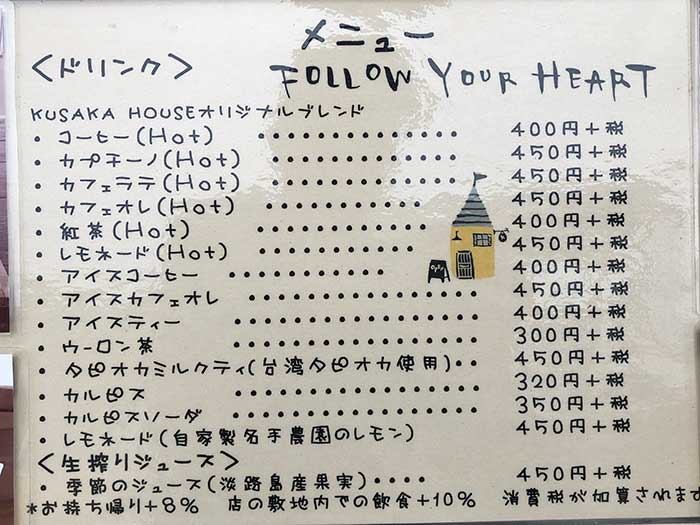 メニュー
＜ドリンク＞ FOLLOW YOUR HEART
KUSAKA HOUSEオリジナルブレンド
・コーヒー(Hot) ・・・・・・・・・・・・・・・・・ 400円＋税
・カプチーノ(Hot) ・・・・・・・・・・・・・・・・ 450円＋税
・カフェラテ(Hot) ・・・・・・・・・・・・・・・・ 450円＋税
・カフェオレ(Hot) ・・・・・・・・・・ 450円＋税
・紅茶(Hot) ・・・・・・・・・・・・・ 400円＋税
・レモネード(Hot) ・・・・・・・・・・・・ 450円＋税
・アイスコーヒー ・・・・・・・・・・・・ 400円＋税
・アイスカフェオレ ・・・・・・・・・・・・・・・・・・ 450円＋税
・アイスティー ・・・・・・・・・・・・・・・・・・・ 400円＋税
・ウーロン茶 ・・・・・・・・・・・・・・・・・・・ 300円＋税
・タピオカミルクティ(台湾タピオカ使用)・・ 450円＋税
・カルピス ・・・・・・・・・・・・・・・・・・・ 320円＋税
・カルピスソーダ ・・・・・・・・・・・・・・・・・・・ 350円＋税
・レモネード(自家製名手農園のレモン) 450円＋税
＜生搾りジュース＞
・季節のジュース(淡路島産果実)・・・・ 450円＋税
*お持ち帰り＋8% 店の敷地内での飲食＋10% 消費税が加算されます